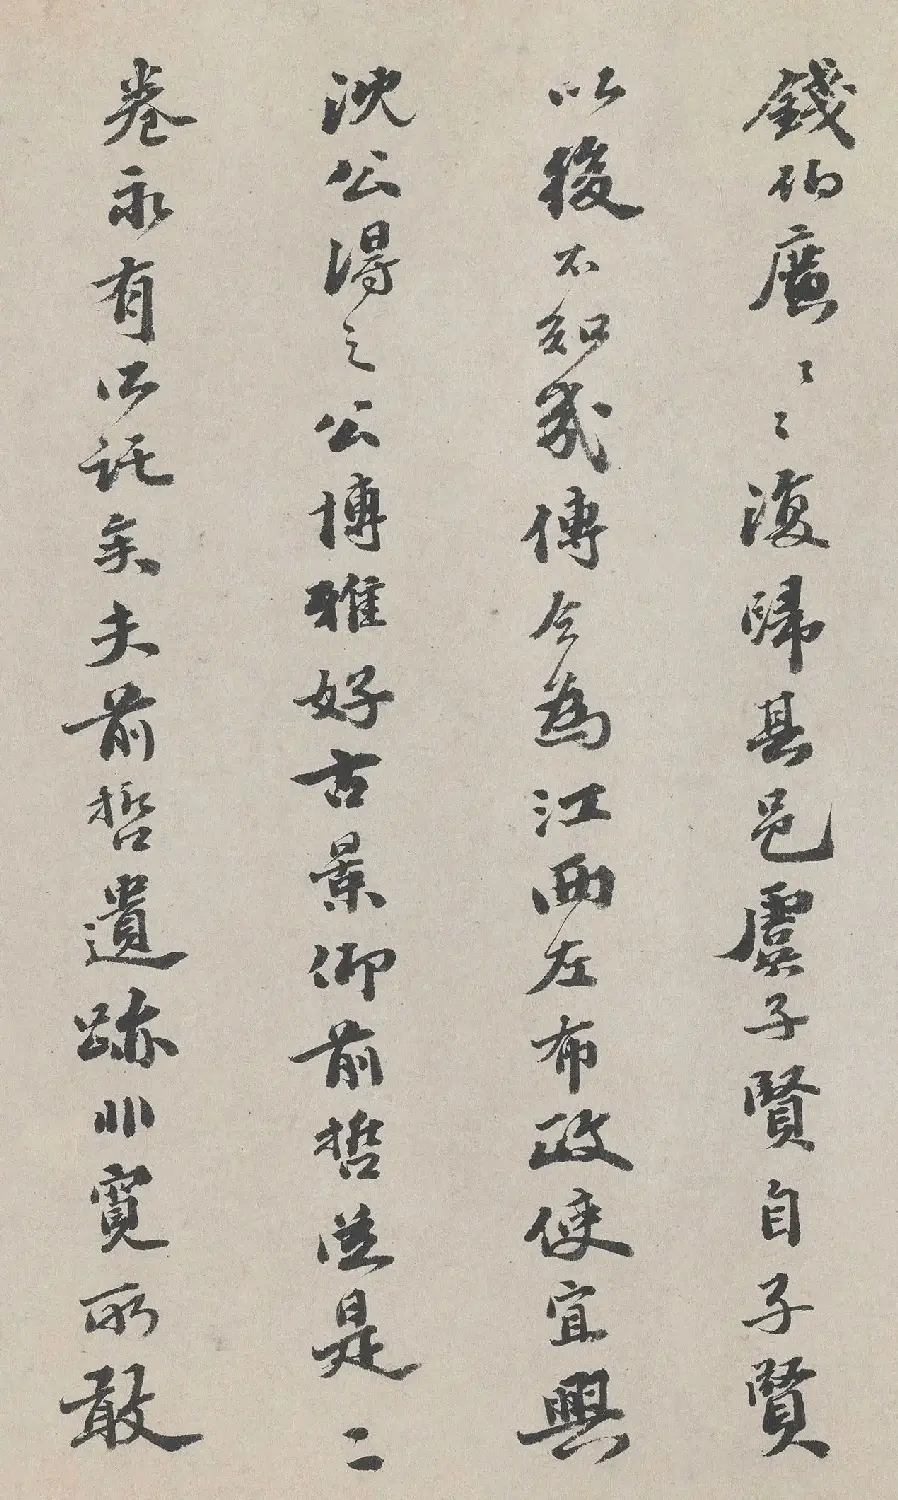 錢伯廣〻〻復歸其邑虞子賢自子賢
以後不知幾傳今為江西左布政使宜興
沈公得之公博雅好古景仰前哲從是二
卷永有所託矣夫前哲遺跡非寬所敢